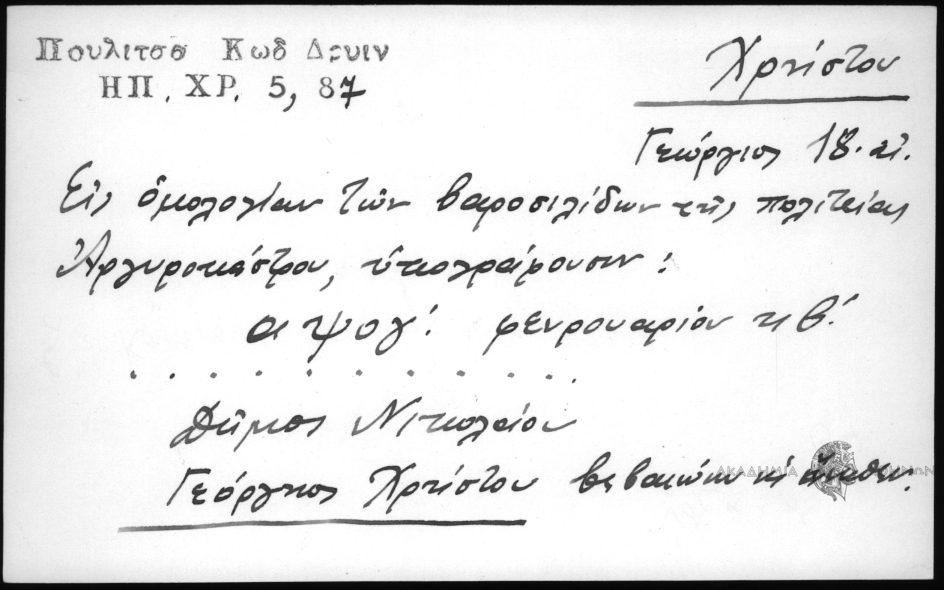 Πουλιτσα Κωδ Δρυιν
ΗΠ. ΧΡ. 5, 87
Χρήστου
Γεώργιος 18. αἰ.
Εἰς ὁμολογίαν τῶν βαροσιλίδων τῆς πολιτείας
Ἀργυροκάστρου, ὑπογράφουσιν:
αψογ΄. φευρουαρίου κβ΄.
. . . . . . . . . . . .
Δῆμος Νικολάου
Γεόργηος Χρήστου βεβαιώνω
ΑΚΑΔΗΜΙΑ ΑΘΗΝΩΝ